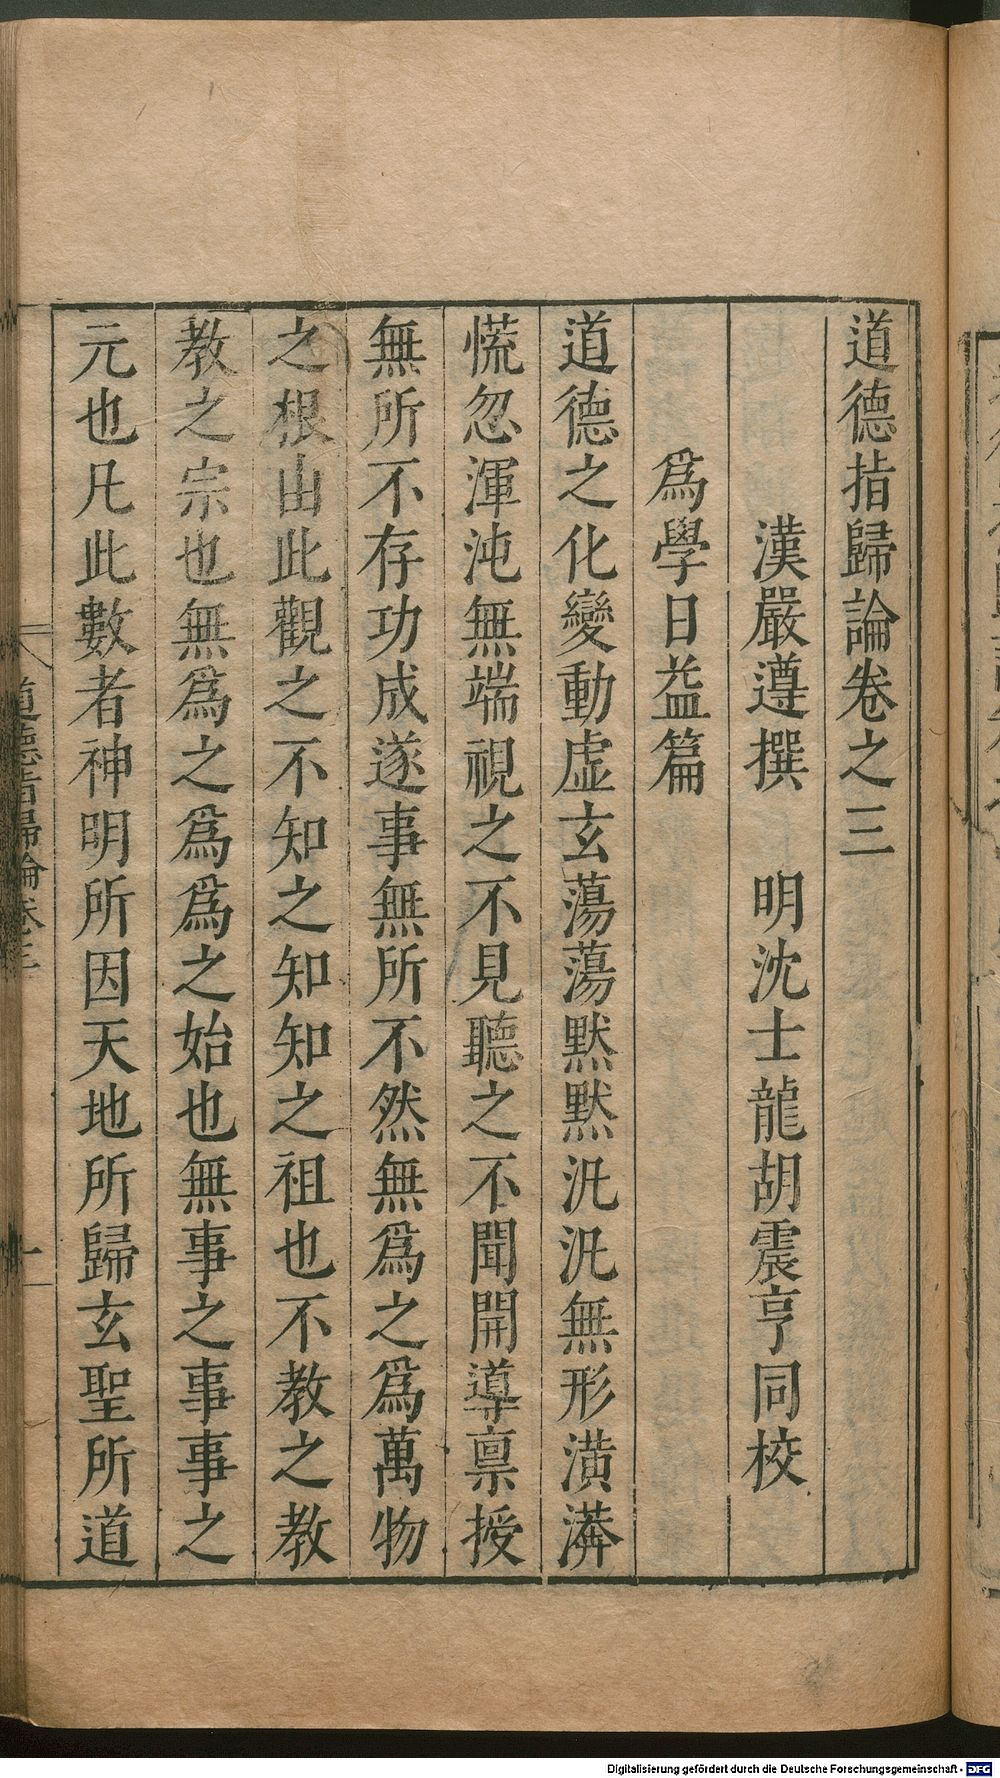 道德指歸論卷之三
漢嚴遵撰　明沈士龍胡震亨同校
爲學日益篇
道德之化變動虛玄蕩蕩默默汎汎無形潢漭
慌忽渾沌無端視之不見聽之不聞開導稟授
無所不存功成遂事無所不然無爲之爲萬物
之根由此觀之不知之知知之祖也不教之教
教之宗也無爲之爲爲之始也無事之事事之
元也凡此數者神明所因天地所歸玄聖所道
道德指歸論卷三
一
Digitalisierung gefördert durch die Deutsche Forschungsgemeinschaft - DFG